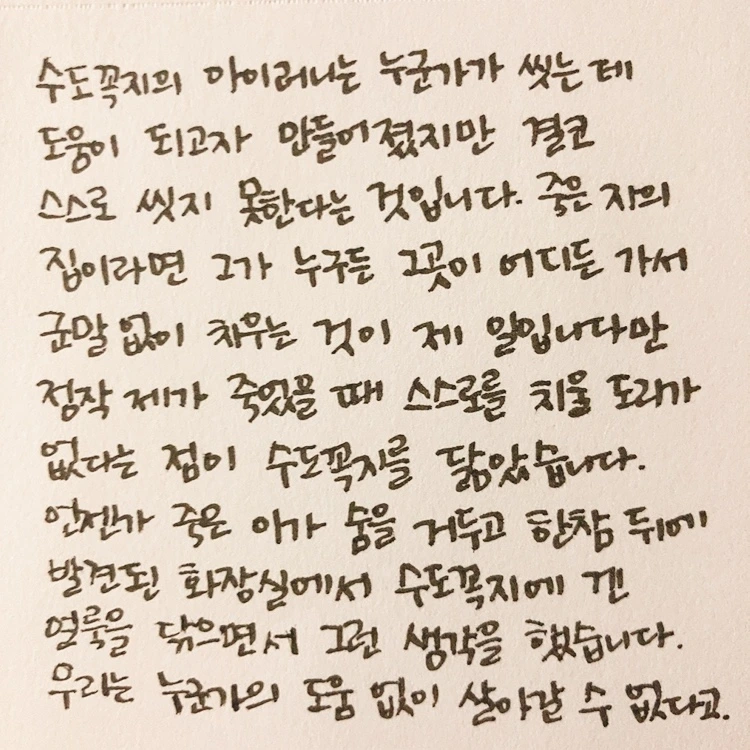 수도꼭지의 아이러니는 누군가가 씻는 데
도움이 되고자 만들어졌지만 결코
스스로 씻지 못한다는 것입니다. 죽은 자의
집이라면 그가 누구든 그곳이 어디든 가서
군말 없이 치우는 것이 제 일입니다만
정작 제가 죽었을 때 스스로를 치울 도리가
없다는 점이 수도꼭지를 닮았습니다.
언젠가 죽은 이가 숨을 거두고 한참 뒤에
발견된 화장실에서 수도꼭지에 낀
얼룩을 닦으면서 그런 생각을 했습니다.
우리는 누군가의 도움 없이 살아갈 수 없다고.